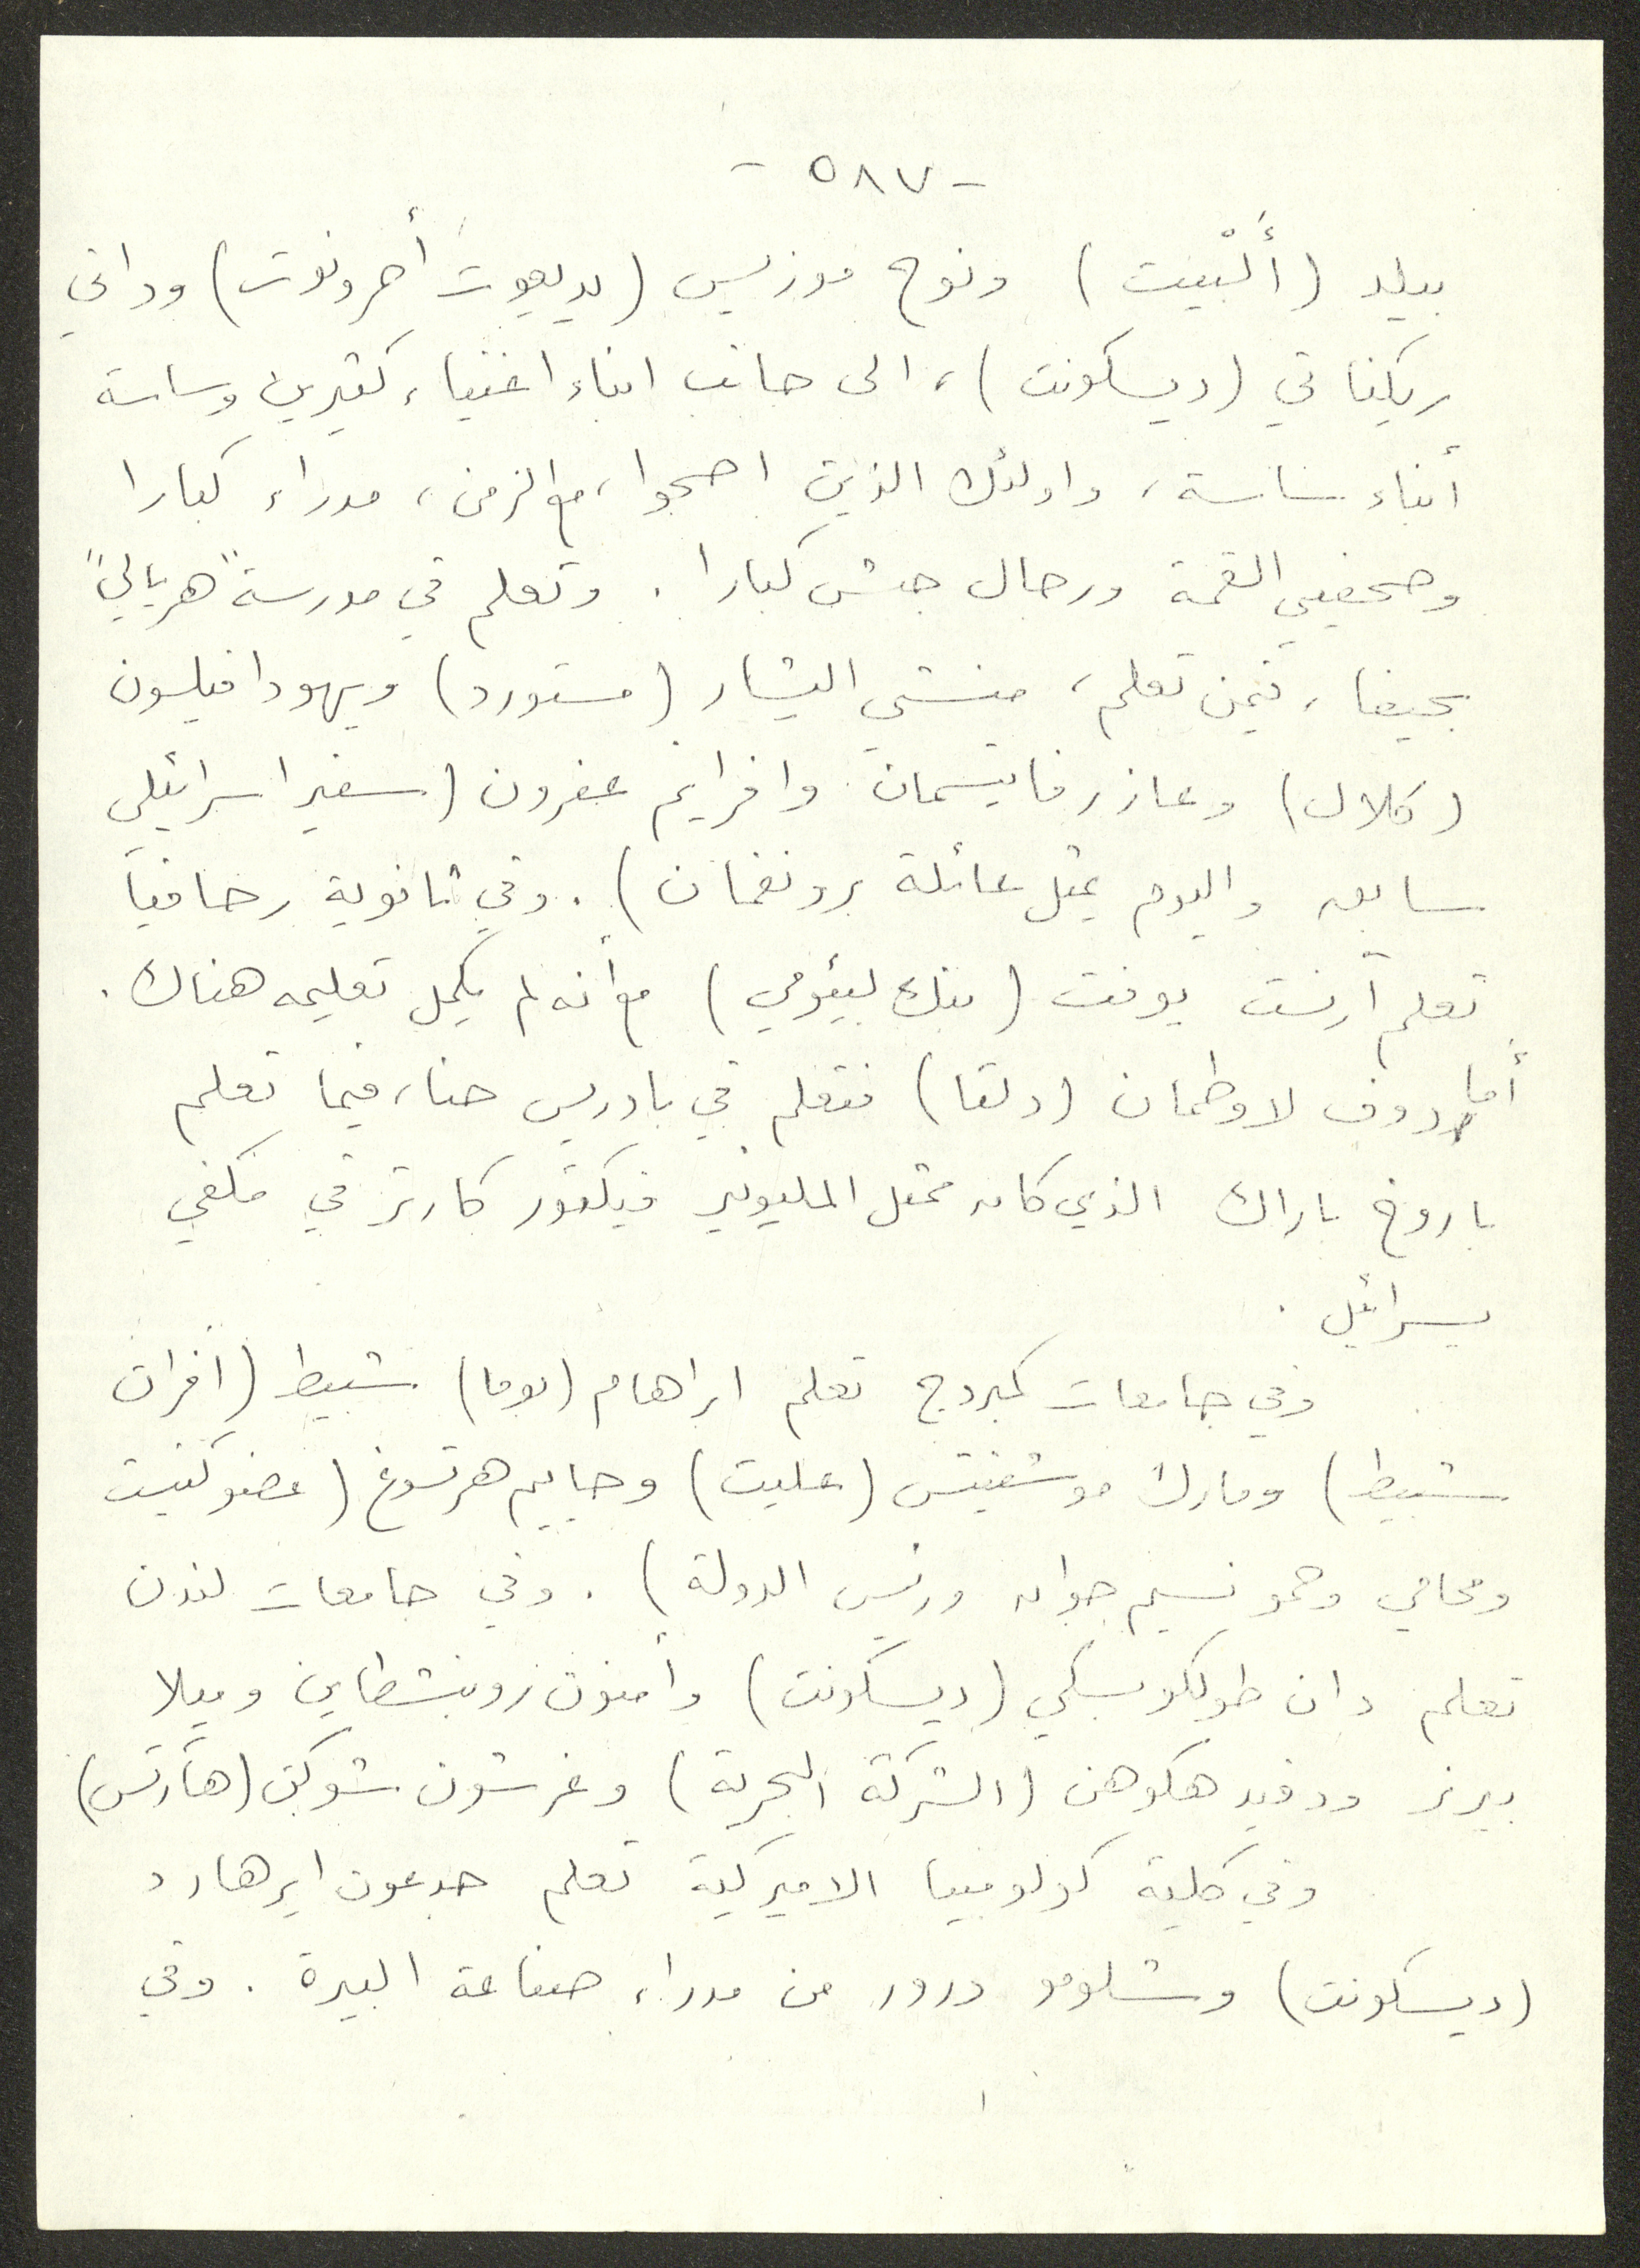 - ٥٨٧ -
بيلد (أَلْبيت) ونوح موزيس (يديعوت أحرونوت) وداني
ريكناتي (ديسكونت)، الى جانب ابناء اغنياء كثيرين وساسة
أبناء ساسة، واولئك الذين اصبحوا، مع الزمن، مدراء كبارا
وصحفيي القمة ورجال جيش كبارا. وتعلم في مدرسة "هريالي"
بحيفا، فيمن تعلم، منشي اليشار (مستورد) ويهودا فيلسون
(كلال) وعازر فايتسمان وافرايم عفرون (سفير اسرائيلي
سابق واليوم يمثل عائلة برونفمان). وفي ثانوية رحافيا
تعلم آرنست يوفت (بنك ليئومي) مع أنه لم يكمل تعليمه هناك.
أما دوف لاوطمان (دلتا) فتعلم في باردس حنا، فيما تعلم
باروخ باراك الذي كان ممثل المليونير فيكتور كارتر في مكفي
يسرائيل.
وفي جامعات كمبردج تعلم ابراهام (بوما) شبيط (افرات
شبيط) ومارك موشفيتس (عليت) وحاييم هرتسوغ (عضو كنيست
ومحامي وحمو نسيم جوان ورئيس الدولة). وفي جامعات لندن
تعلم دان طولكوبسكي (ديسكونت) وأمنون روبنشطاين وميلا
بيرنر ودفيد هكوهن (الشركة البحرية) وغرشون شوكن (هآرتس)
وفي كلية كولومبيا الاميركية تعلم جدعون ايرهارد
(ديسكونت) وشلومو درور من مدراء صناعة البيرة. وفي